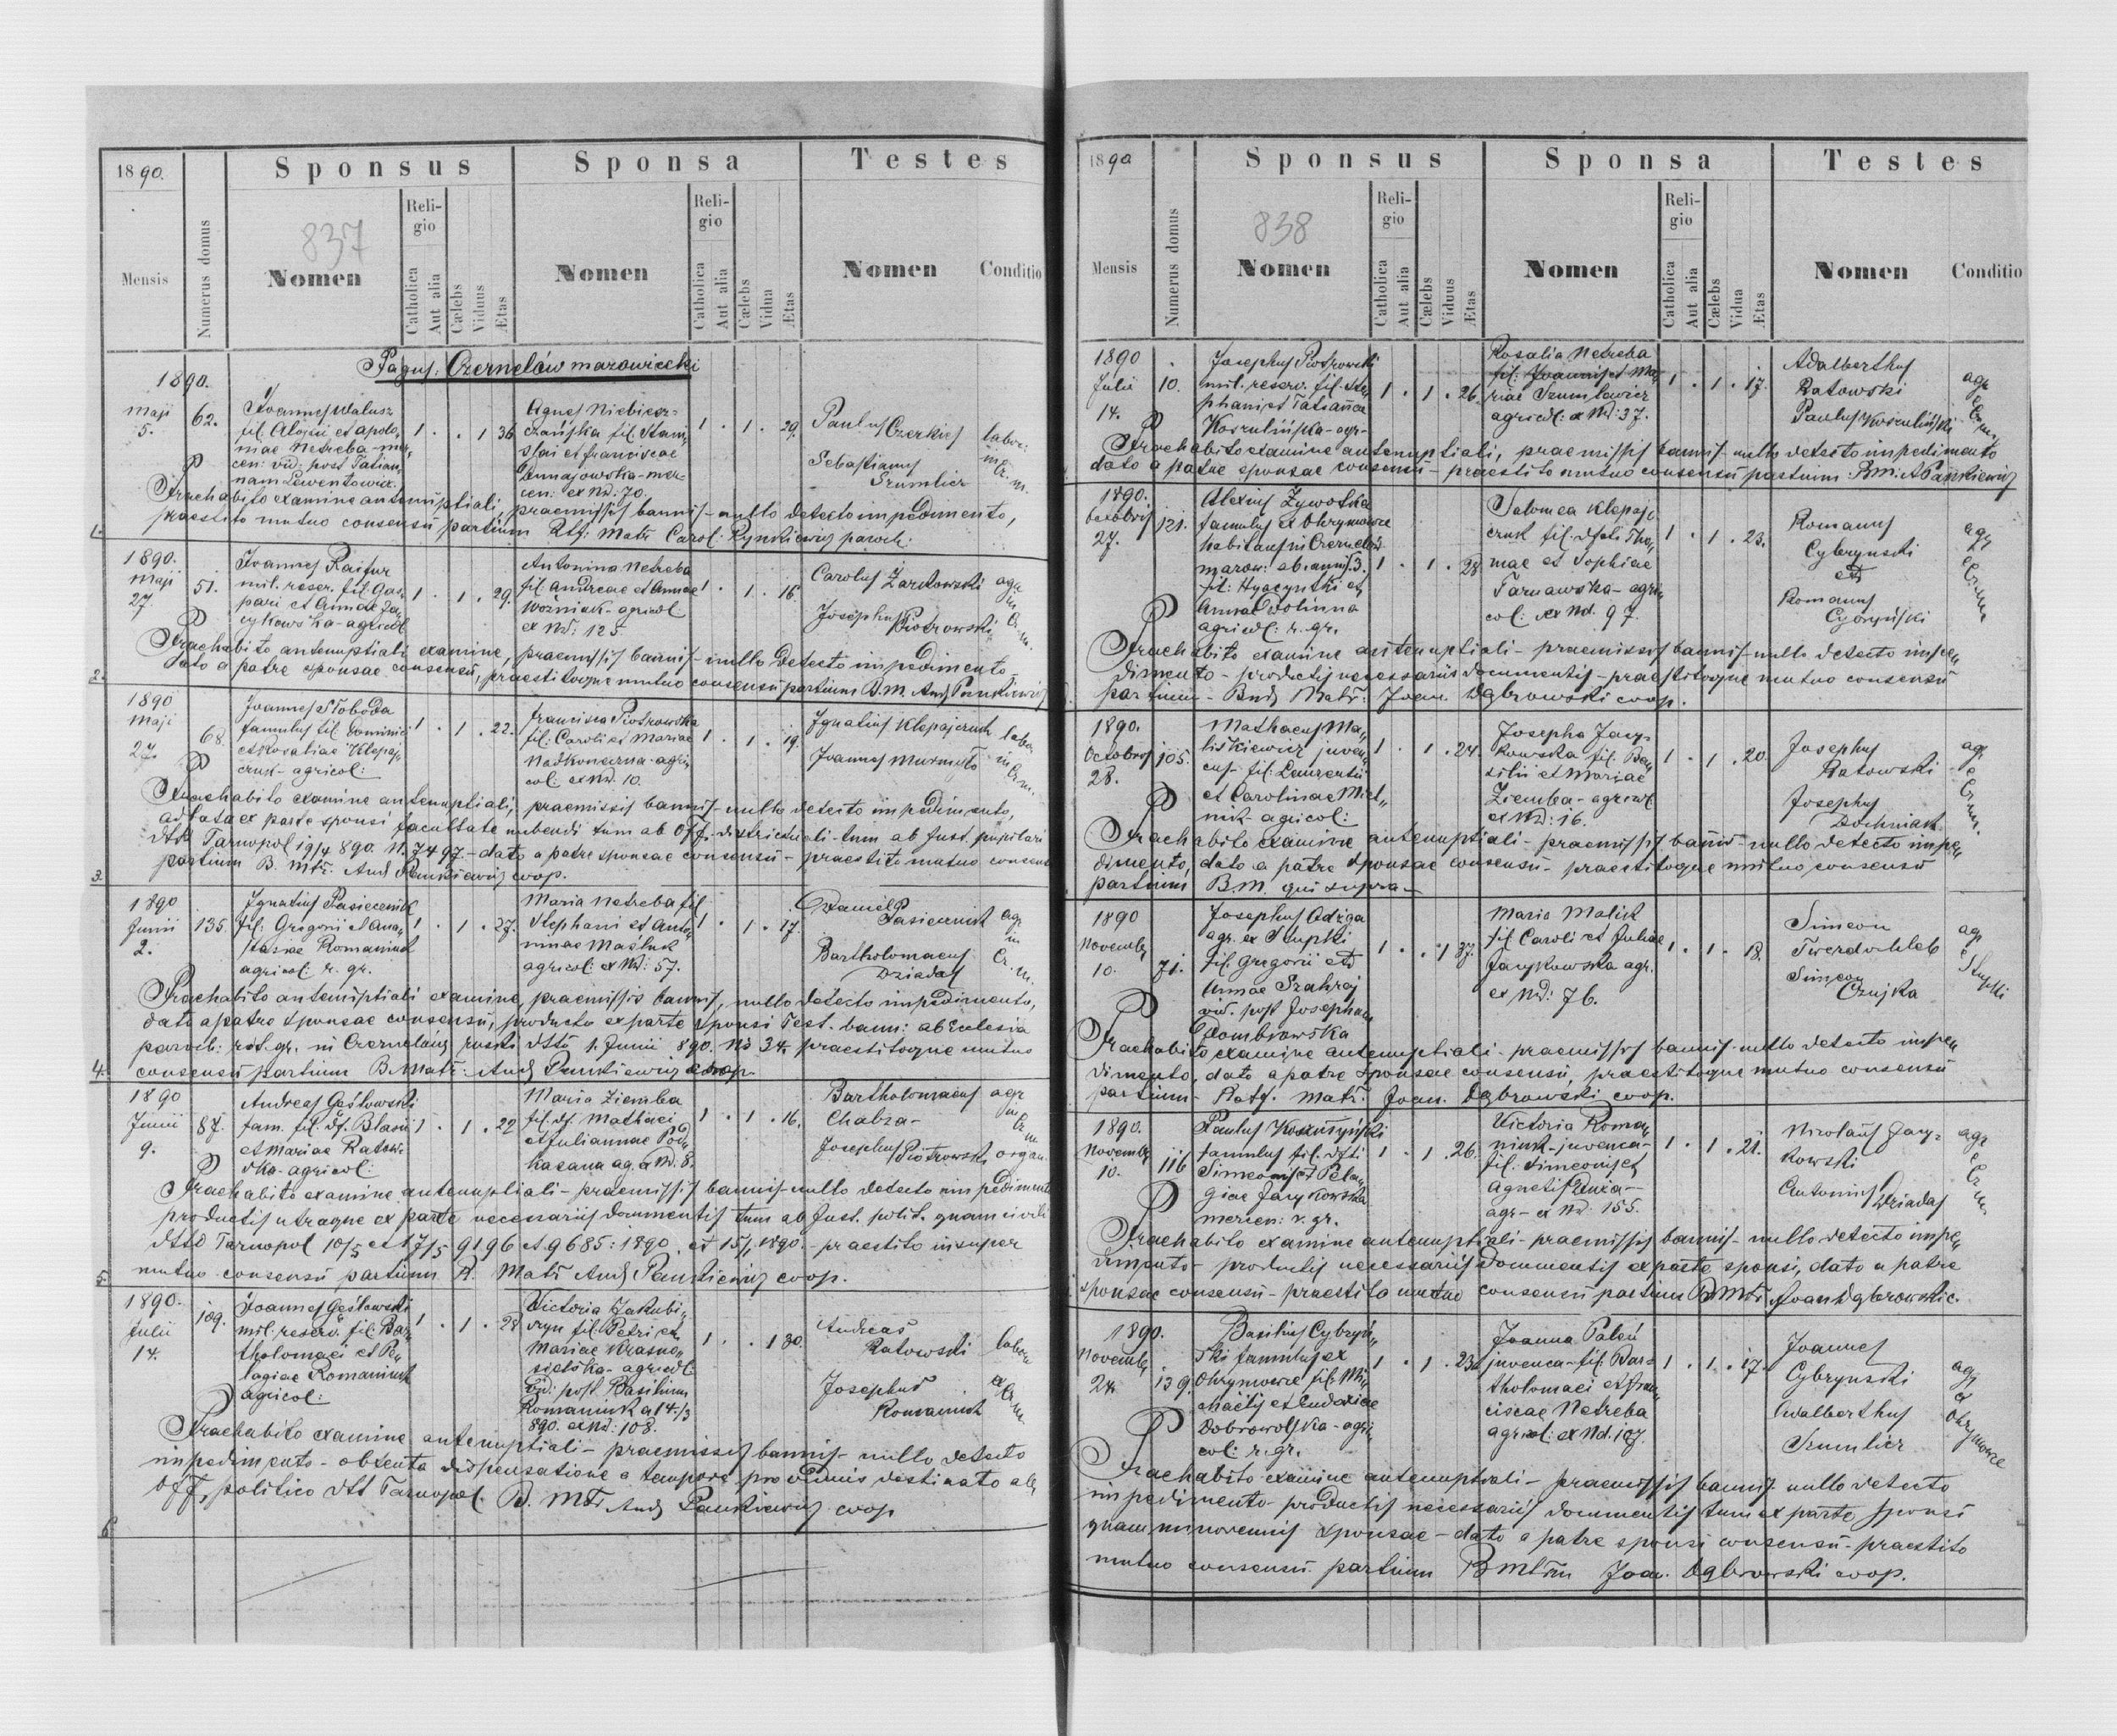 1890.
Sponsus
Sponsa
Testes
837
Mensis
Numerus domus
Nomen
Religio
Catholica
Aut alia
Cælebs
Viduus
Ætas
Nomen
Religio
Catholica
Aut alia
Cælebs
Vidua
Ætas
Nomen
Conditio
Pagus: Czernelów mazowiecki
1890.
Maji
5.
62.
Joannes Walusz
fil. Aloisii et Apolo„
niae Netreba - mer„
cen: vid: post Tatian„
nam Lewentowicz
1 . . 1 36
Agnes Niebiesz=
czańska fil. Stani„
slai et Franciscae
cen: ex Nd. 70.
1 . 1 . 29.
Paulus Czerkies
Sebastianus
Szumlicz
labor.
in
Cr. m.
Praehabito examine antenuptiali, praemissis bannis - nullo detecto impedimento,
praestito mutuo consensu partium Rtf: Matr. Carol. Rynkiewicz paroch.
1.
1890.
Maji
27.
51.
Joannes Raifur
mil. reser. fil. Gas„
pari et Annae Ja„
cykowska - agricol
1 . 1 . 29.
Antonina Netreba
fil. Andreae et Annae
Woźniak - agricol.
ex Nd: 125
1 . 1 . 16.
Carolus Zarkowski
Josephus Piotrowski
agr.
in
Cr. m.
Praehabito antenuptiali examine, praemissis bannis - nullo detecto impedimento,
dato a patre sponsae consensu, praestitoque mutuo consensu partium B. M. And. Pankiewicz
2.
1890
Maji
27.
68.
Joannes Słoboda
famulus fil. Dominici
et Rosaliae Klepaj„
czuk - agricol:
1 . 1 . 22.
Francisca Piotrowska
fil. Caroli et Mariae
Nadkonerna - agri„
col. ex Nd. 10.
1 . 1 . 19.
Ignatius Klepajczuk
Joannes Murmyło
labor
in
Cr. m.
Praehabito examine antenuptiali, praemissis bannis - nullo detecto impedimento,
allata ex parte sponsi facultate nubendi tum ab Off. districtuali - tum ab Just. pupilari
dtto Tarnopol 19/4 890. N. 7497 - dato a patre sponsae consensu - praestito mutuo consensu
partium B. Mtr. And Pankiewicz coop.
3.
1890
Junii
2.
135.
Ignatius Pasiecznik
fil. Gregorii et Ana„
stasiae Romaniuk
agricol. r. gr.
1 . 1 . 27.
Maria Netreba fil
Stephani et Anto„
ninae Maśluk
agricol: ex Nd: 57.
1 . 1 . 17.
Daniel
Pasiecznik
Bartholomaeus
Dziadas
agr
in
Cr. m.
Praehabito antenuptiali examine, praemissis bannis, nullo detecto impedimento,
dato a patre sponsae consensu, producto ex parte sponsi Test. bann: ab Ecclesia
paroch: rit. gr. in Czernelów ruski dtto 1. Junii 890. No 34. praestitoque mutuo
consensu partium B. Matr: And Pankiewicz coop.
4.
1890
Junii
9.
87.
Andreas Gęśłowski
fam. fil. df. Blasii
et Mariae Ratow„
ska - agricol:
1 . 1 . 22
Maria Ziemba
fil. df. Mathaei
et Juliannae Pod„
hasana ag. ex Nd. 8.
1 . 1 . 16.
Bartholomaeus
Chabza -
Josephus Piotrowski
agr
in
Cr. m
organ.
Praehabito examine antenuptiali - praemissis bannis - nullo detecto impedimento
productis utraque ex parte necessariis documentis tum ab Just. polit. quam civili
dtto Tarnopol 10/5 et 17/5 9196 et 9685: 1890. et 15/. 1890. - praestito insuper
mutuo consensu partium R. Matr. And Pankiewicz coop.
5.
1890.
Julii
14.
109.
Joannes Gęśłowski
mil. reserv. fil. Bar„
tholomaei et Pe„
lagiae Romaniuk
agricol:
1 . 1 . 28
Victoria Jakubi„
szyn fil. Petri et
Mariae Krasno„
sielska - agricol.
vid: post Basilium
Romaniuk a 14/3
890. ex Nd: 108.
1 . . 1 30.
Andreas
Ratowski
Josephus
Romaniuk
labor
ex
Cr. m.
Praehabito examine antenuptiali - praemissis bannis - nullo detecto
impedimento - obtenta dispensatione a tempore pro viduis destinato ab
Off, politico dtt Tarnopol. B. Mtr And Pankiewicz coop
6.
1890
Sponsus
Sponsa
Testes
838
Mensis
Numerus domus
Nomen
Religio
Catholica
Aut alia
Cælebs
Viduus
Ætas
Nomen
Religio
Catholica
Aut alia
Cælebs
Vidua
Ætas
Nomen
Conditio
1890
Julii
14.
10.
Josephus Piotrowski
mil. reserv. fil. Ste„
phani et Tatianna
Koszulińska - agr -
1 . 1 . 26.
Rosalia Netreba
fil: Joannis et Ma„
riae Szumlewicz
agricol: ex Nd: 37.
1 . 1 . 17.
Adalberthus
Ratowski
Paulus Koszuliński
agr
e
Cr. m.
Praehabito examine antenuptiali, praemissis bannis - nullo detecto impedimento
dato a patre sponsae consensu - praestito mutuo consensu partium B. M. A Pankiewicz
1890.
Octobris
27.
121.
Alexius Zywotka
famulus ex Ohrymowce
habitans in Czernelów
mazow: ab. annis. 3.
fil: Hyacynthi et
Annae Dolinna
agricol: r. gr.
1 . 1 . 28
Salomea Klepaj„
czuk fil. defti Tho„
mae et Sophiae
Tarnawska - agri„
col. ex Nd. 97.
1 . 1 . 23.
Romanus
Cybrynski
et
Romanus
Cybryński
agr
e
Cr. m
Praehabito examine antenuptiali - praemissis bannis - nullo detecto impe„
dimento - productis necessariis documentis - praestitoque mutuo consensu
partium - Bnd. Matr. Joan. Dąbrowski coop.
1890.
Octobris
28.
105.
Mathaeus Ma„
liskiewicz juven„
cus - fil: Laurentii
et Carolinae Miel„
nik - agricol:
1 . 1 . 24
Josepha Jacy„
kowska fil. Ba„
silii et Mariae
Ziemba - agricol
ex Nd: 16.
1 . 1 . 20.
Josephus
Ratowski
Josephus
Dochniak
agr
e
Cr. m.
Praehabito examine antenuptiali - praemissis bannis - nullo detecto impe„
dimento, dato a patre sponsae consensu - praestitoque mutuo consensu
partium B. M. qui supra -
1890
Novembr
10.
71.
Josephus Adżga
agr. ex Stupki
fil. Gregorii et
Annae Szahraj
vid. post Josepham
Dombrowska
1 . . 1 37.
Maria Malik
fil Caroli et Juliae
Jacykowska agr.
ex Nd: 76.
1 . 1 . 18.
Simeon
Twerdochleb
Simeon
Czujka
agr
e
Stupki
Praehabito examine antenuptiali - praemissis bannis - nullo detecto impe„
dimento, dato a patre sponsae consensu, praestitoque mutuo consensu
partium - Ratf. Matr. Joan. Dąbrowski coop.
1890.
Novembr
10.
116
Paulus Koszuliński
famulus fil. dfti
Simeonis et Pela„
giae Jacykowska
mercen: r. gr.
1 . 1 . 26.
Victoria Roma„
niuk - juvenca -
fil. Simeonis et
Agnetis Duża -
agr - ex Nd: 155.
1 . 1 . 21.
Nicolaus Jacy„
kowski
Antonius Dziadas
agr
e
Cr. m.
Praehabito examine antenuptiali - praemissis bannis - nullo detecto impe„
dimento - productis necessariis documentis ex parte sponsi, dato a patre
sponsae consensu - praestito mutuo consensu partium B Mtr. Joan Dąbrowski c.
1890.
Novembr
24.
139.
Basilius Cybryń„
ski famulus ex
Ohrymowce fil. Mi„
chaelis et Eudoxiae
Dobrowolska - agri„
col: r. gr.
1 . 1 . 23.
Joanna Paleń
juvenca - fil. Bar=
tholomaei et Fran„
ciscae Netreba
agricol: ex Nd. 107.
1 . 1 . 17.
Joannes
Cybrynski
Adalberthus
Szumlicz
agr
ex
Ohrymowce
Praehabito examine antenuptiali - praemissis bannis - nullo detecto
impedimento - productis necessariis documentis tum ex parte sponsi
quam minorennis sponsae - dato a patre sponsi consensu - praestito
mutuo consensu partium B Mtrm Joan. Dąbrowski coop.